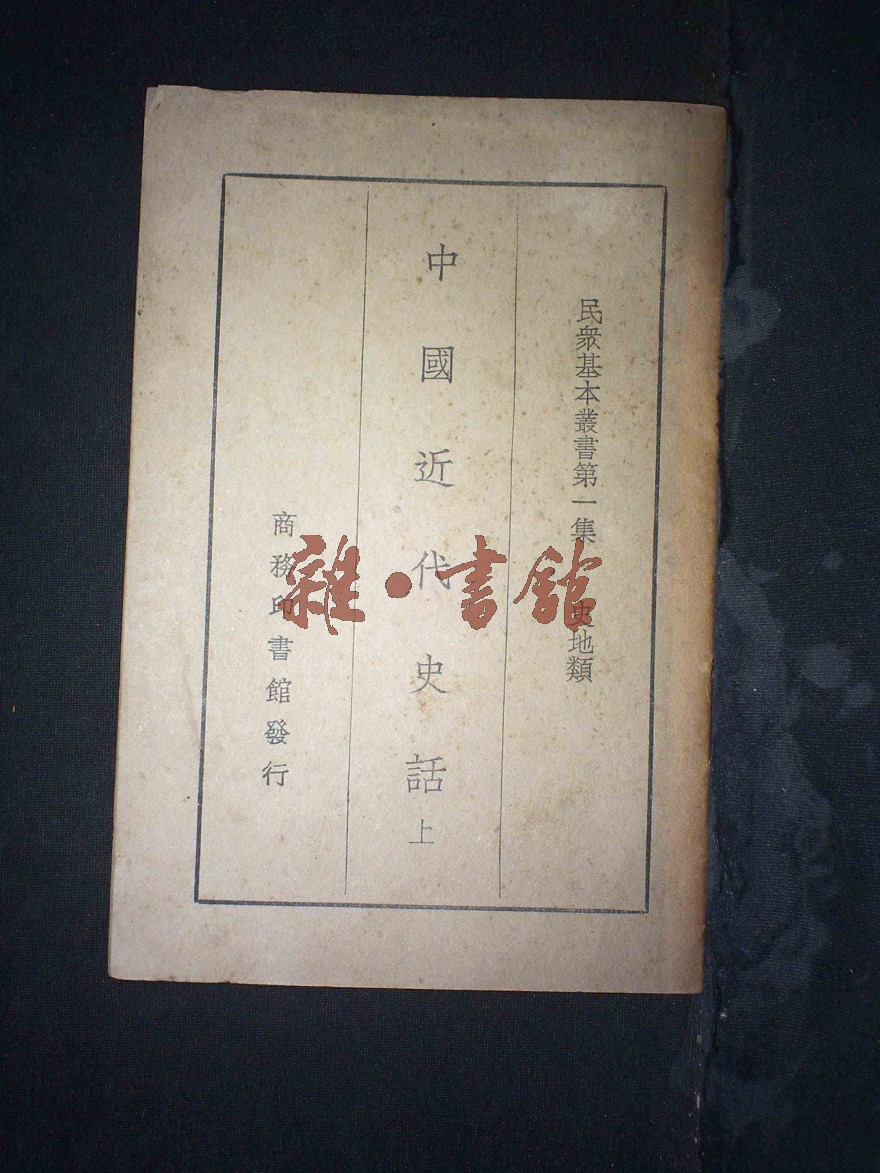 民衆基本叢書第一集 史地類
中國近代史話 上
商務印書館發行
雜·書館